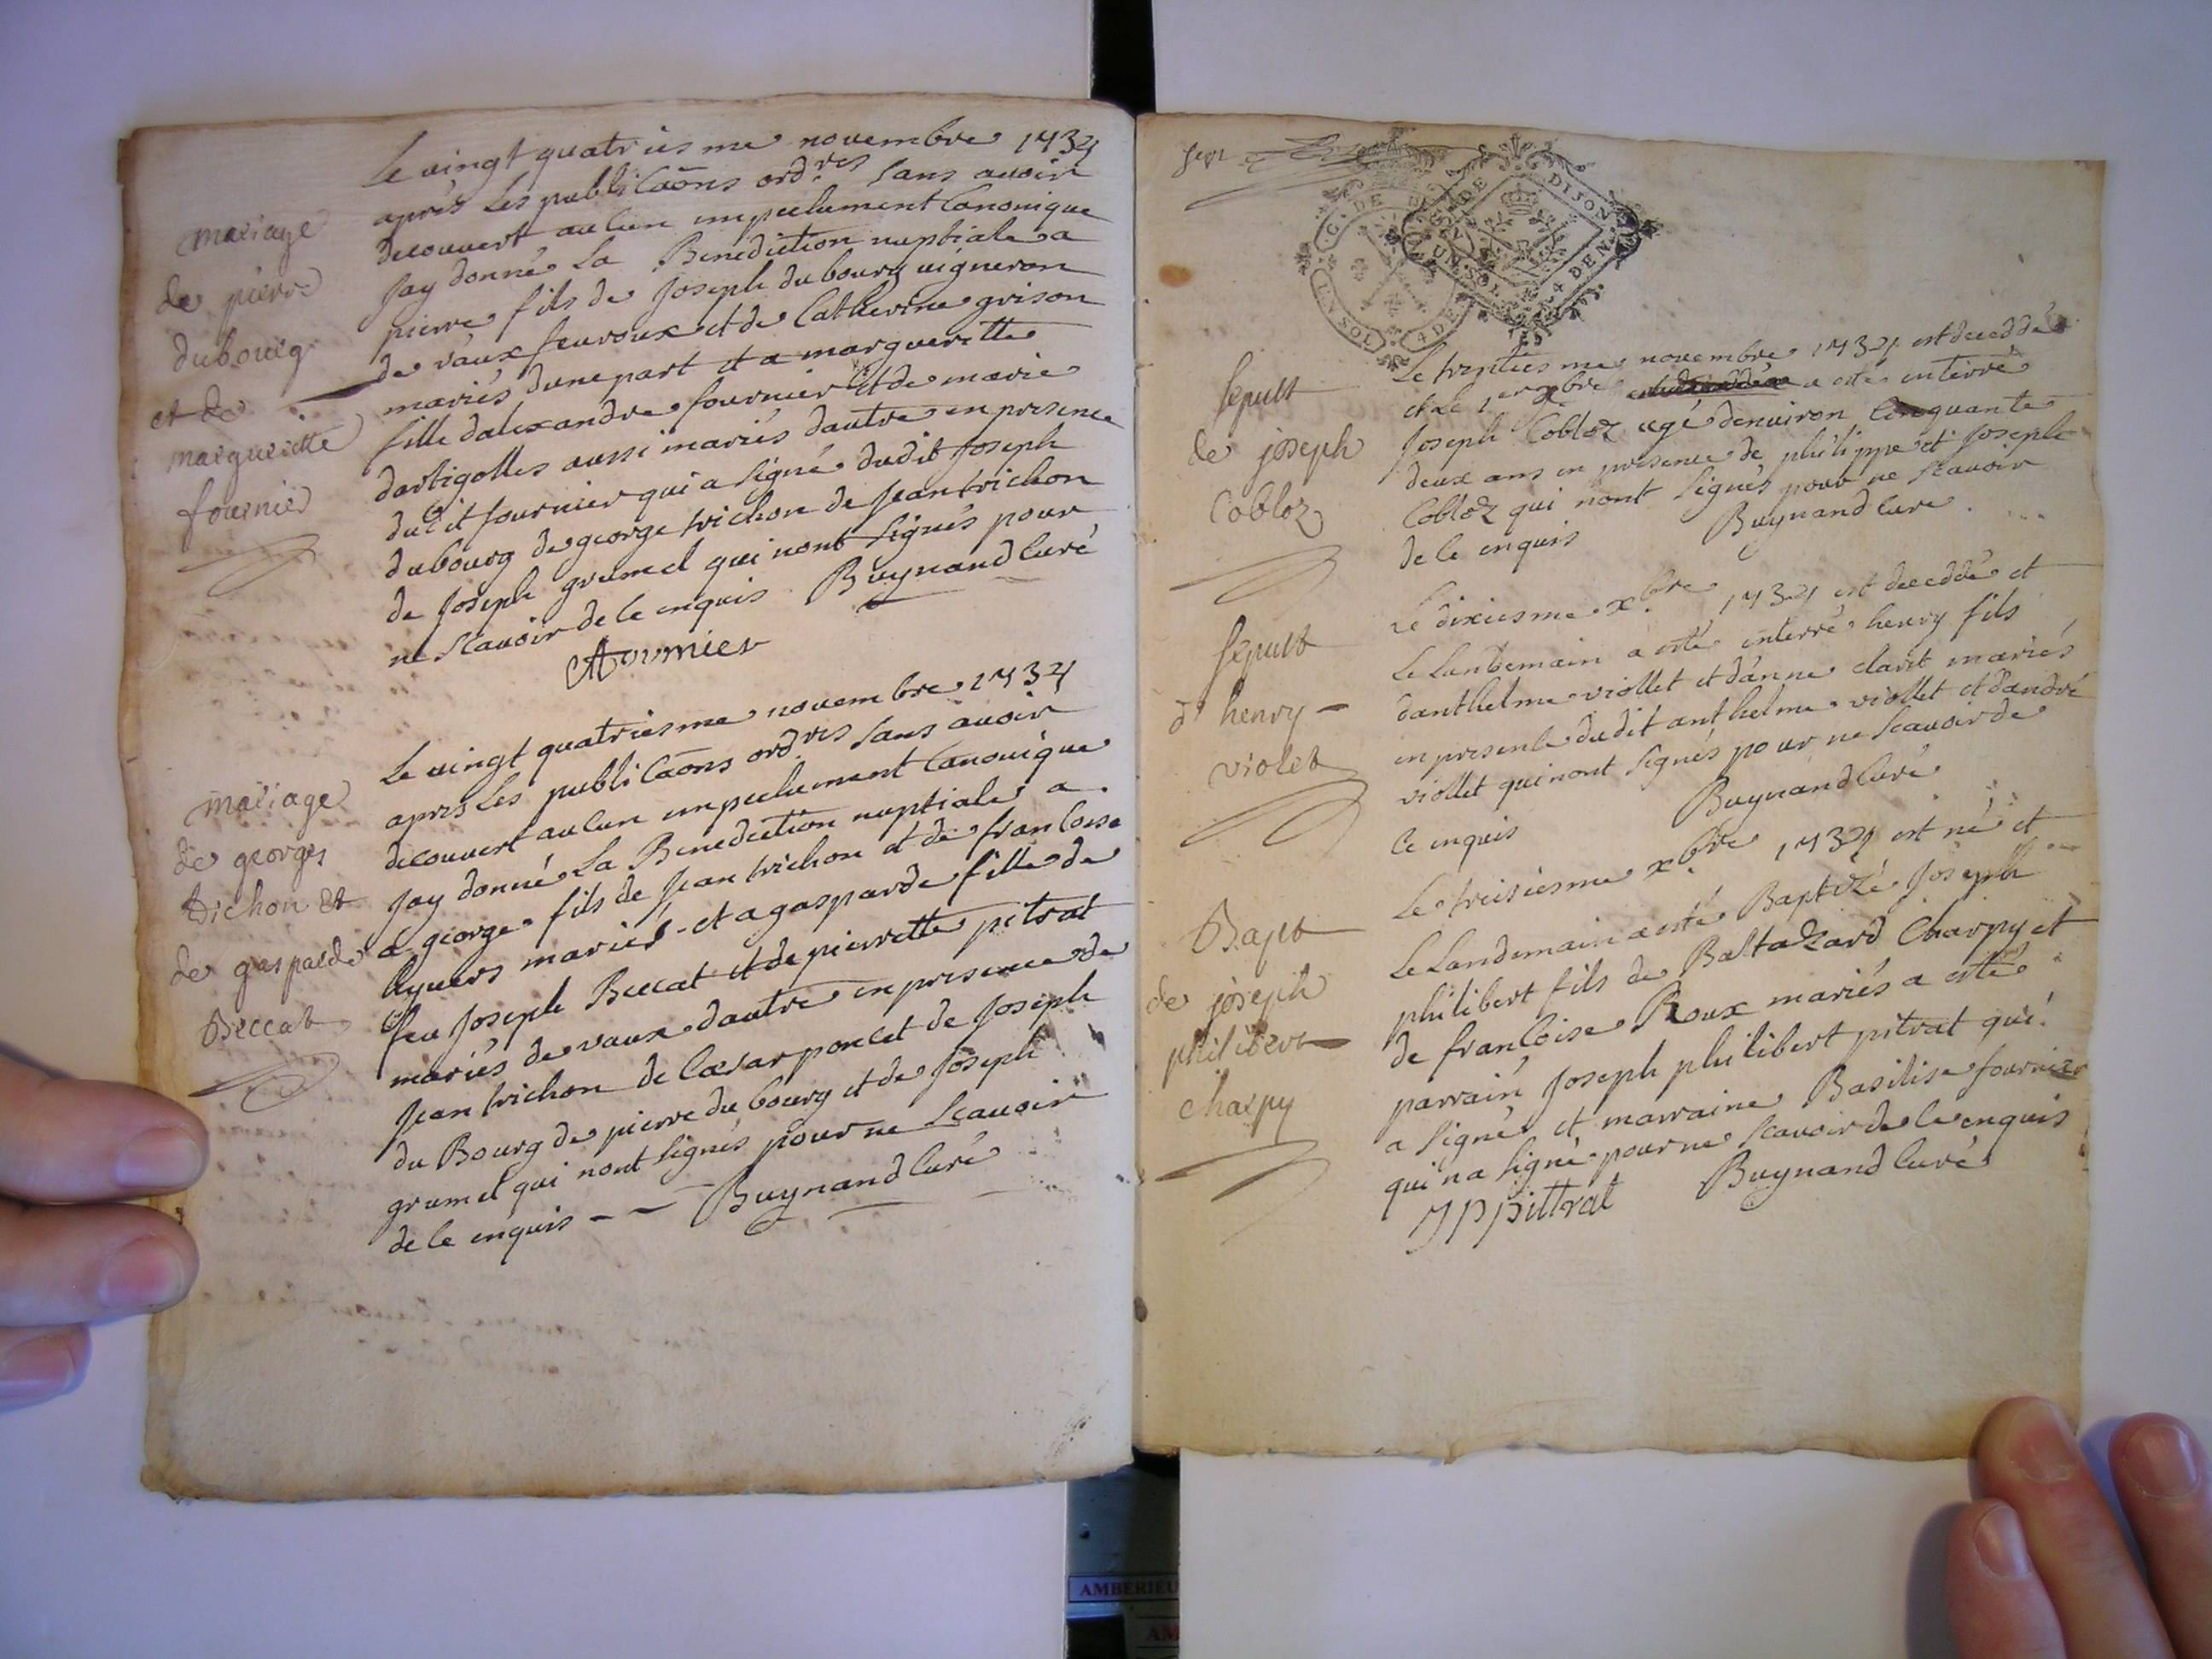 mariage
de pierre
dubourg
et de
margueritte
fournier
Le vingt quatriesme novembre 1734
aprés Les publicaõns ord.res sans avoir
decouvert aucun empechement Canonique
Jay donné La Benediction nuptiale a
pierre fils de Joseph dubourg vigneron
de vaux fevroux et de Catherine grison
mariés dune part et a margueritte
fille dalexandre fournier et de marie
dartigolles aussi mariés dautre en presence
dudit fournier qui a signé dudit Joseph
dubourg de george trichon de Jean trichon
de Joseph grumel qui nont signés pour
ne scavoir de ce enquis Buynand Curé
AFournier
mariage
de georges
trichon et
de gasparde
Beccat
Le vingt quatriesme novembre 1734
apres Les publicaõns ord.res sans avoir
decouvert aucun empechement Canonique
Jay donné La Benediction nuptiale a
a george fils de Jean trichon et de francoise
mariés et a gasparde fille de
feu Joseph Beccat et de pierrette pitrat
mariés de vaux dautre en presence de
Jean trichon de Cæsar poncet de Joseph
du Bourg de pierre du bourg et de Joseph
grumel qui nont signés pour ne scavoir
de ce enquis - - Buynand Curé
G. DE DIJON
UN SOL 4 DEN
G. DE DIJON
UN SOL 4 DEN
sepult
de joseph
Cobloz
Le trentiesme novembre 1734 est decedde
et Le 1er xbre a esté enterré
Joseph Cobloz agé denviron Cinquante
deux ans en presence de philippe et Joseph
Cobloz qui nont signés pour ne scavoir
de ce enquis Buynand Curé
sepult
d'henry -
violet
Le dixiesme xbre 1734 est deceddé et
Le Landemain a esté enterré henry fils
danthelme viollet et d'anne claret mariés
en presence dudit anthelme viollet et d'andré
viollet qui nont signés pour ne scavoir de
ce enquis Buynand Curé
Bapt
de joseph
philibert
charpy
Le treisiesme xbre 1734 est né et
Le Landemain a esté Baptizé Joseph
philibert fils de Baltazard Charpy et
de francoise Roux mariés a esté
parrain Joseph philibert pitrat qui
a signé et marraine Basilise fournier
qui na signé pour ne scavoir de ce enquis
JPpittrat Buynand Curé
AMBERIEU